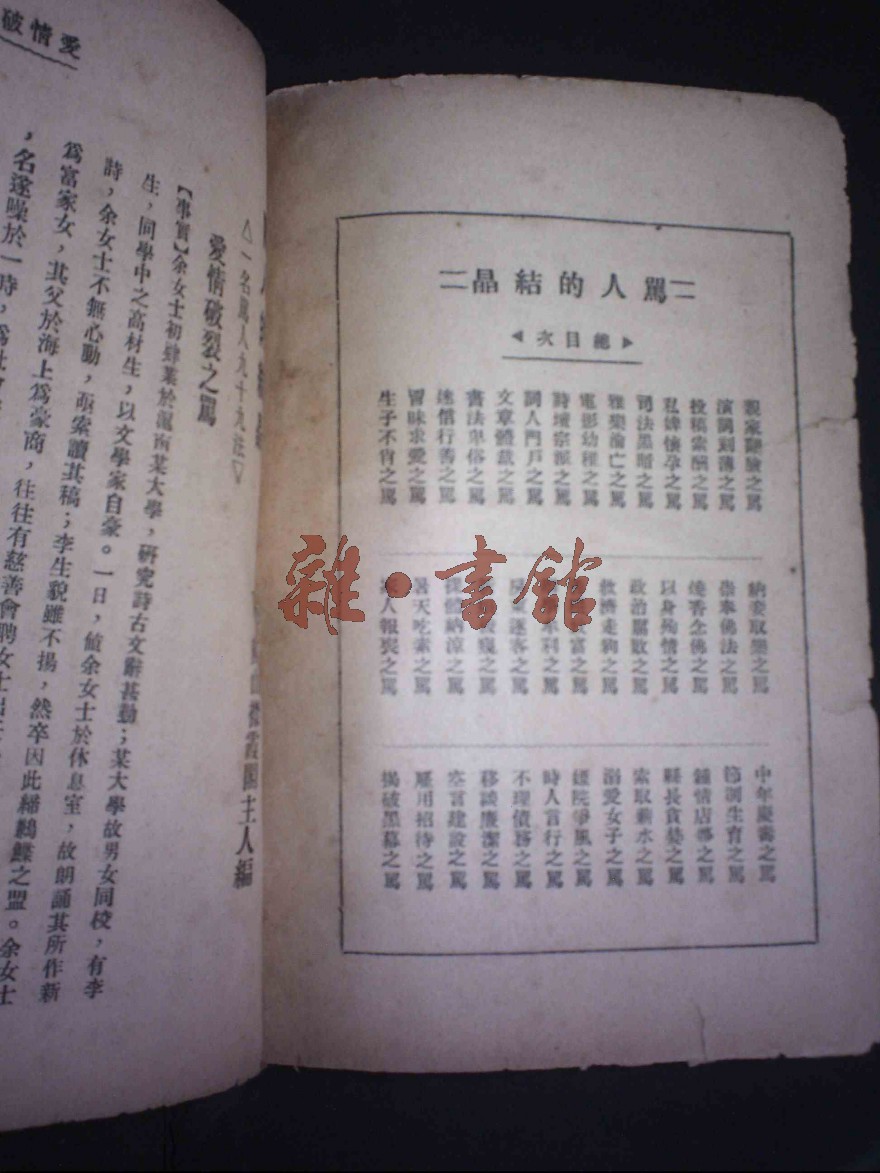 罵人的結晶
總目次
親家之罵
演詞刻薄之罵
投稿索酬之罵
私婢懷孕之罵
司法黑暗之罵
雅樂淪亡之罵
電影幼稚之罵
詩壇宗派之罵
詞人門戶之罵
文章體裁之罵
書法卑俗之罵
迷信行善之罵
冒昧求愛之罵
生子不肖之罵
納妾取樂之罵
崇奉佛法之罵
燒香念佛之罵
以身殉情之罵
政治腐敗之罵
救濟走狗之罵
富之罵
利之罵
逐客之罵
之罵
納涼之罵
暑天吃素之罵
人報喪之罵
中年慶壽之罵
節制生育之罵
鍾情店夥之罵
縣長貪婪之罵
索取薪水之罵
溺愛女子之罵
妓院爭風之罵
時人言行之罵
不理債務之罵
侈談廉潔之罵
空言建設之罵
雇用招待之罵
揭破黑幕之罵
雜·書館
△一名罵人九十九法▽
主人編
愛情破裂之罵
【事實】余女士初肄業於滬南某大學，研究詩古文辭甚勤；某大學故男女同校，有李
生，同學中之高材生，以文學家自豪。一日，値余女士於休息室，故朗誦其所作新
詩，余女士不無心動，亟索讀其稿；李生貌雖不揚，然卒因此締鶼鰈之盟。余女士
爲富家女，其父於海上爲豪商，往往有慈善會聘女士出
，名遂噪於一時，爲社會
愛情破